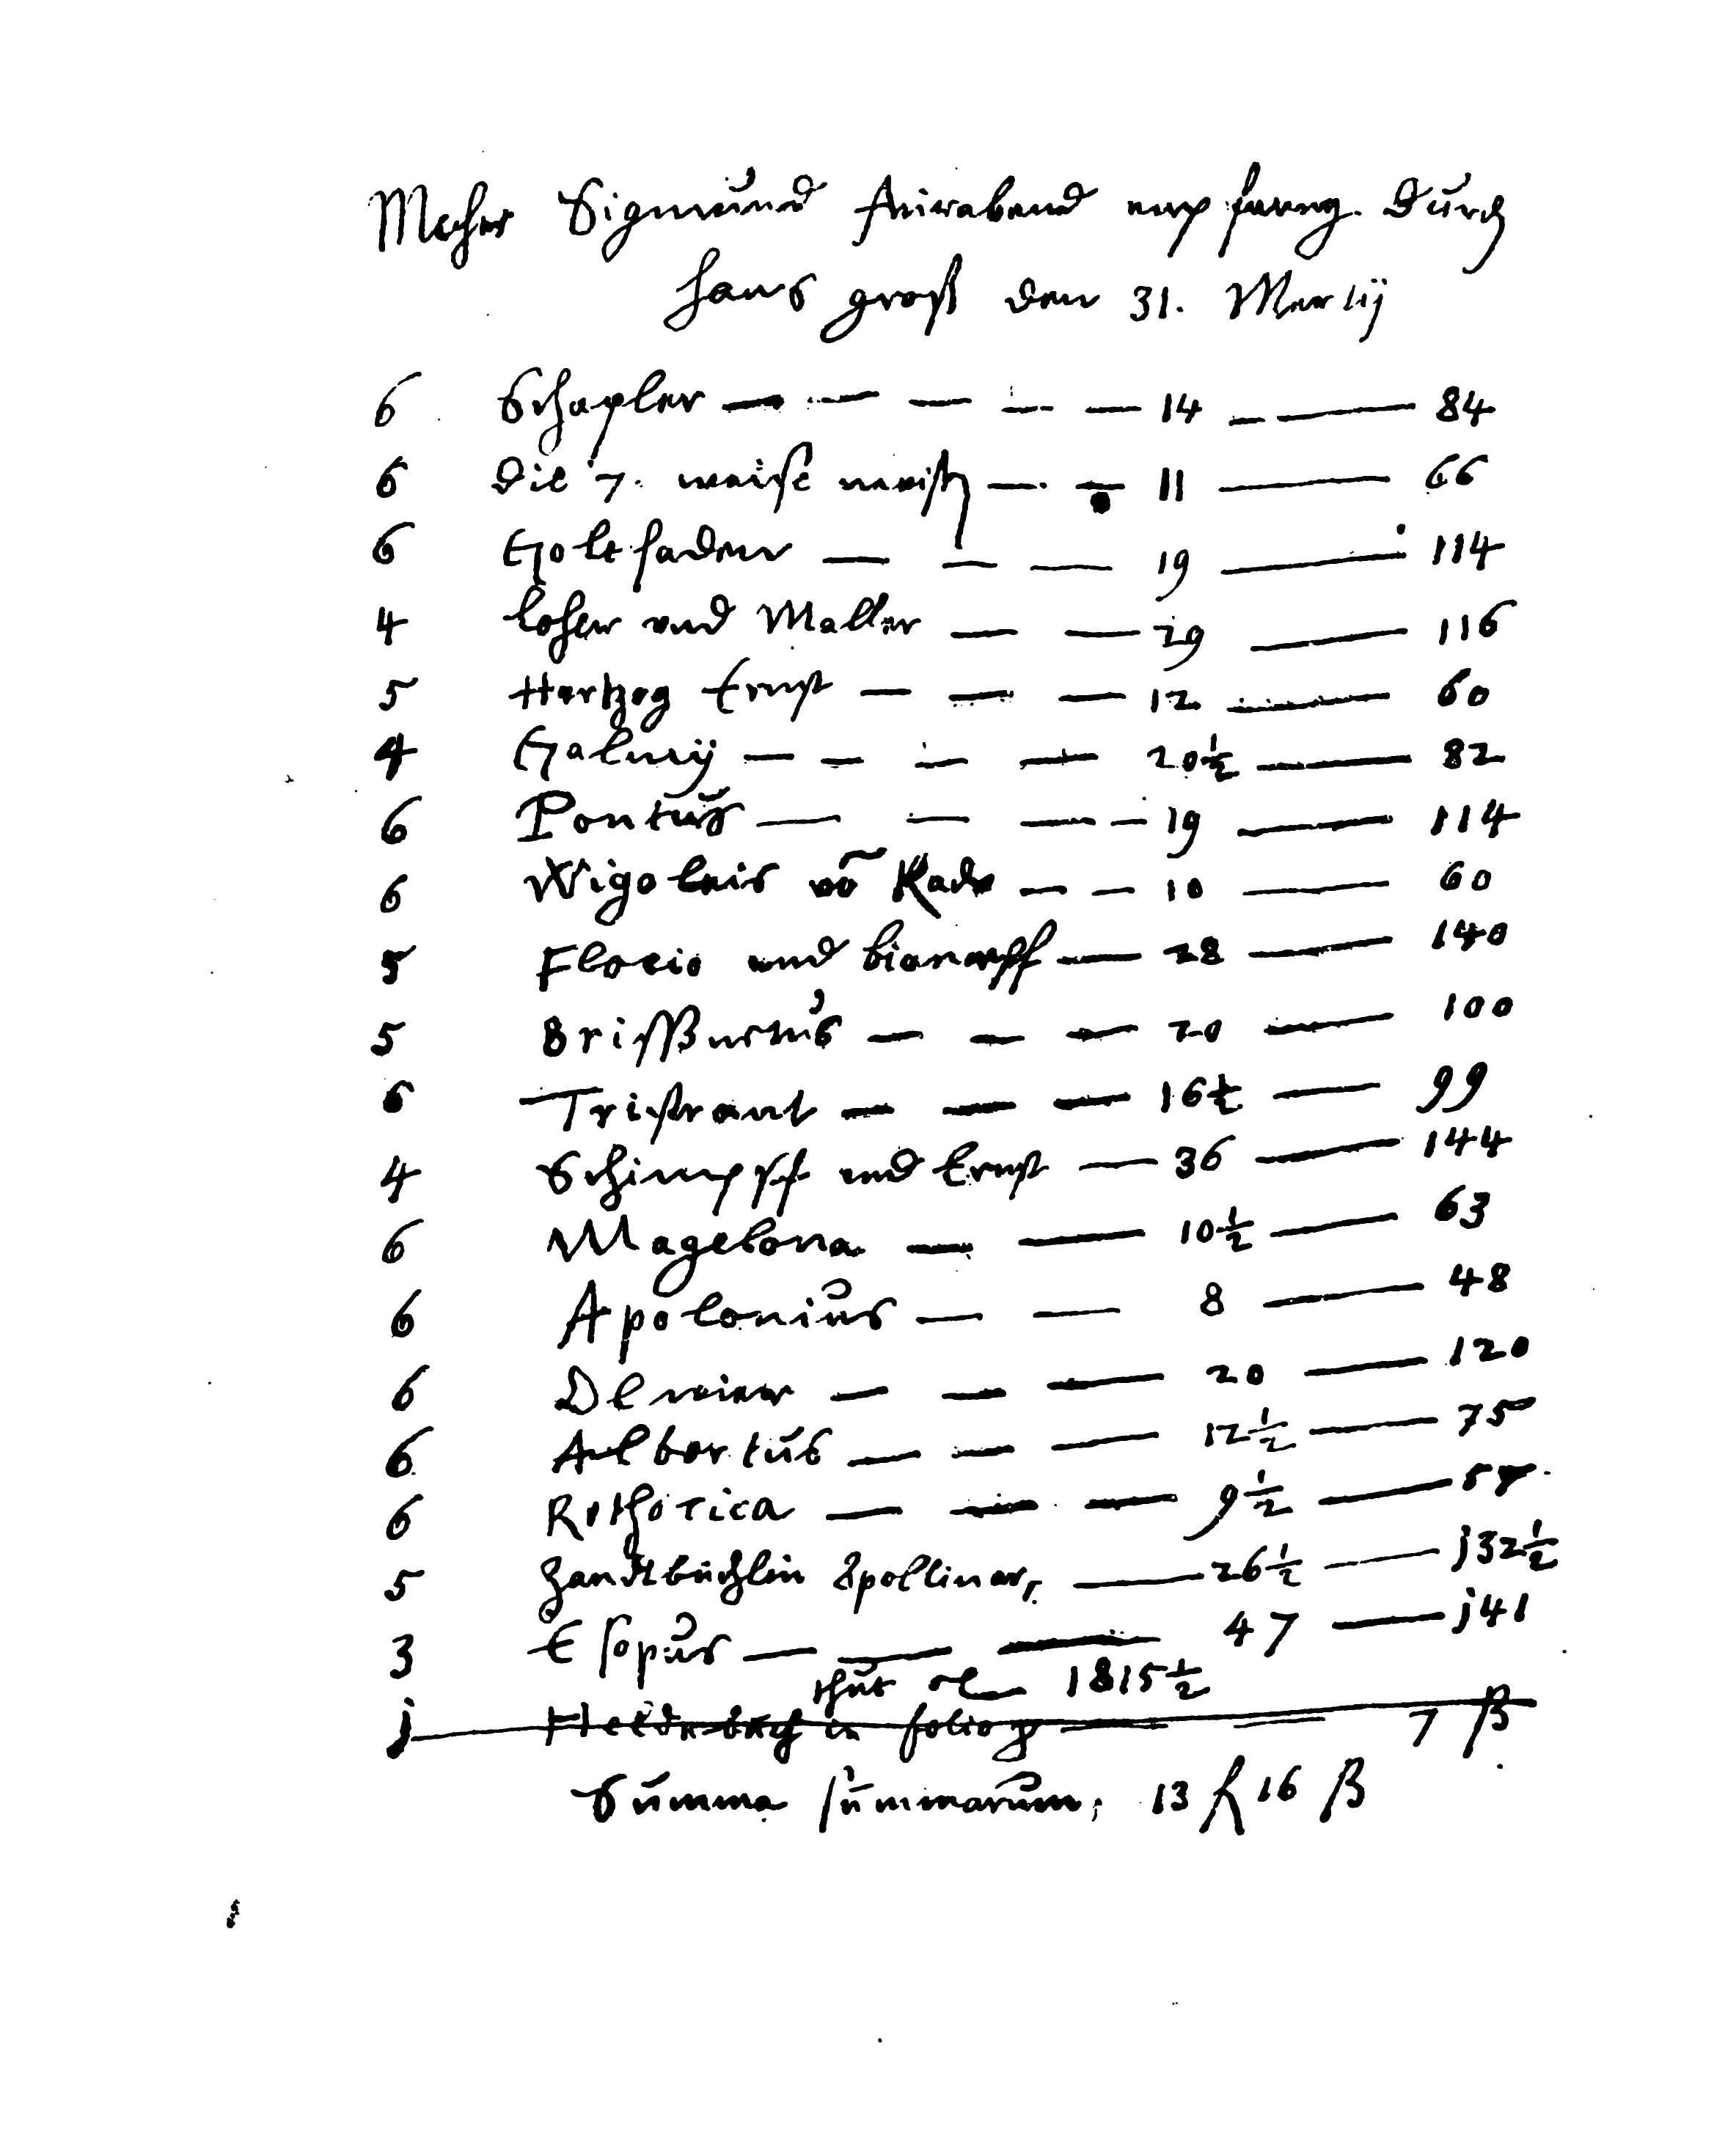 Meher Sigmund Feirabend empfang. durch
Hans groß den 31. Martij
6 Schapler — — — — — 14 — — 84
6 Die 7. weise meistr — — 11 — 66
6 Goltfaden — — — 19 — 114
4 Loher vnd Maller — — 29 — 116
5 Hertzog Ernst — — — 12 — 60
4 Galmij — — — — 20½ — 82
6 Pontus — — — — 19 — 114
6 Wigoleis võ Rade — — 10 — 60
5 Florio vnd bianceff — 28 — 140
5 Brissonetus — — — 20 — 100
6 Tristrant — — — 16½ — 99
4 Schimpff vnd Ernst — 36 — 144
6 Magelona — — 10½ — 63
6 Apolonius — — 8 — 48
6 — — — 20 — 120
6 Albertus — — — 12½ — 75
6 Rethorica — — — 9½ — 57
5 Handtbüchlin Apollinar. — 26½ — j32½
3 Esopus — — — 47 — j41
thut 1815½
j Heldenbuch in folio — — 7 ß
Summa summarum; 13 fl 16 ß